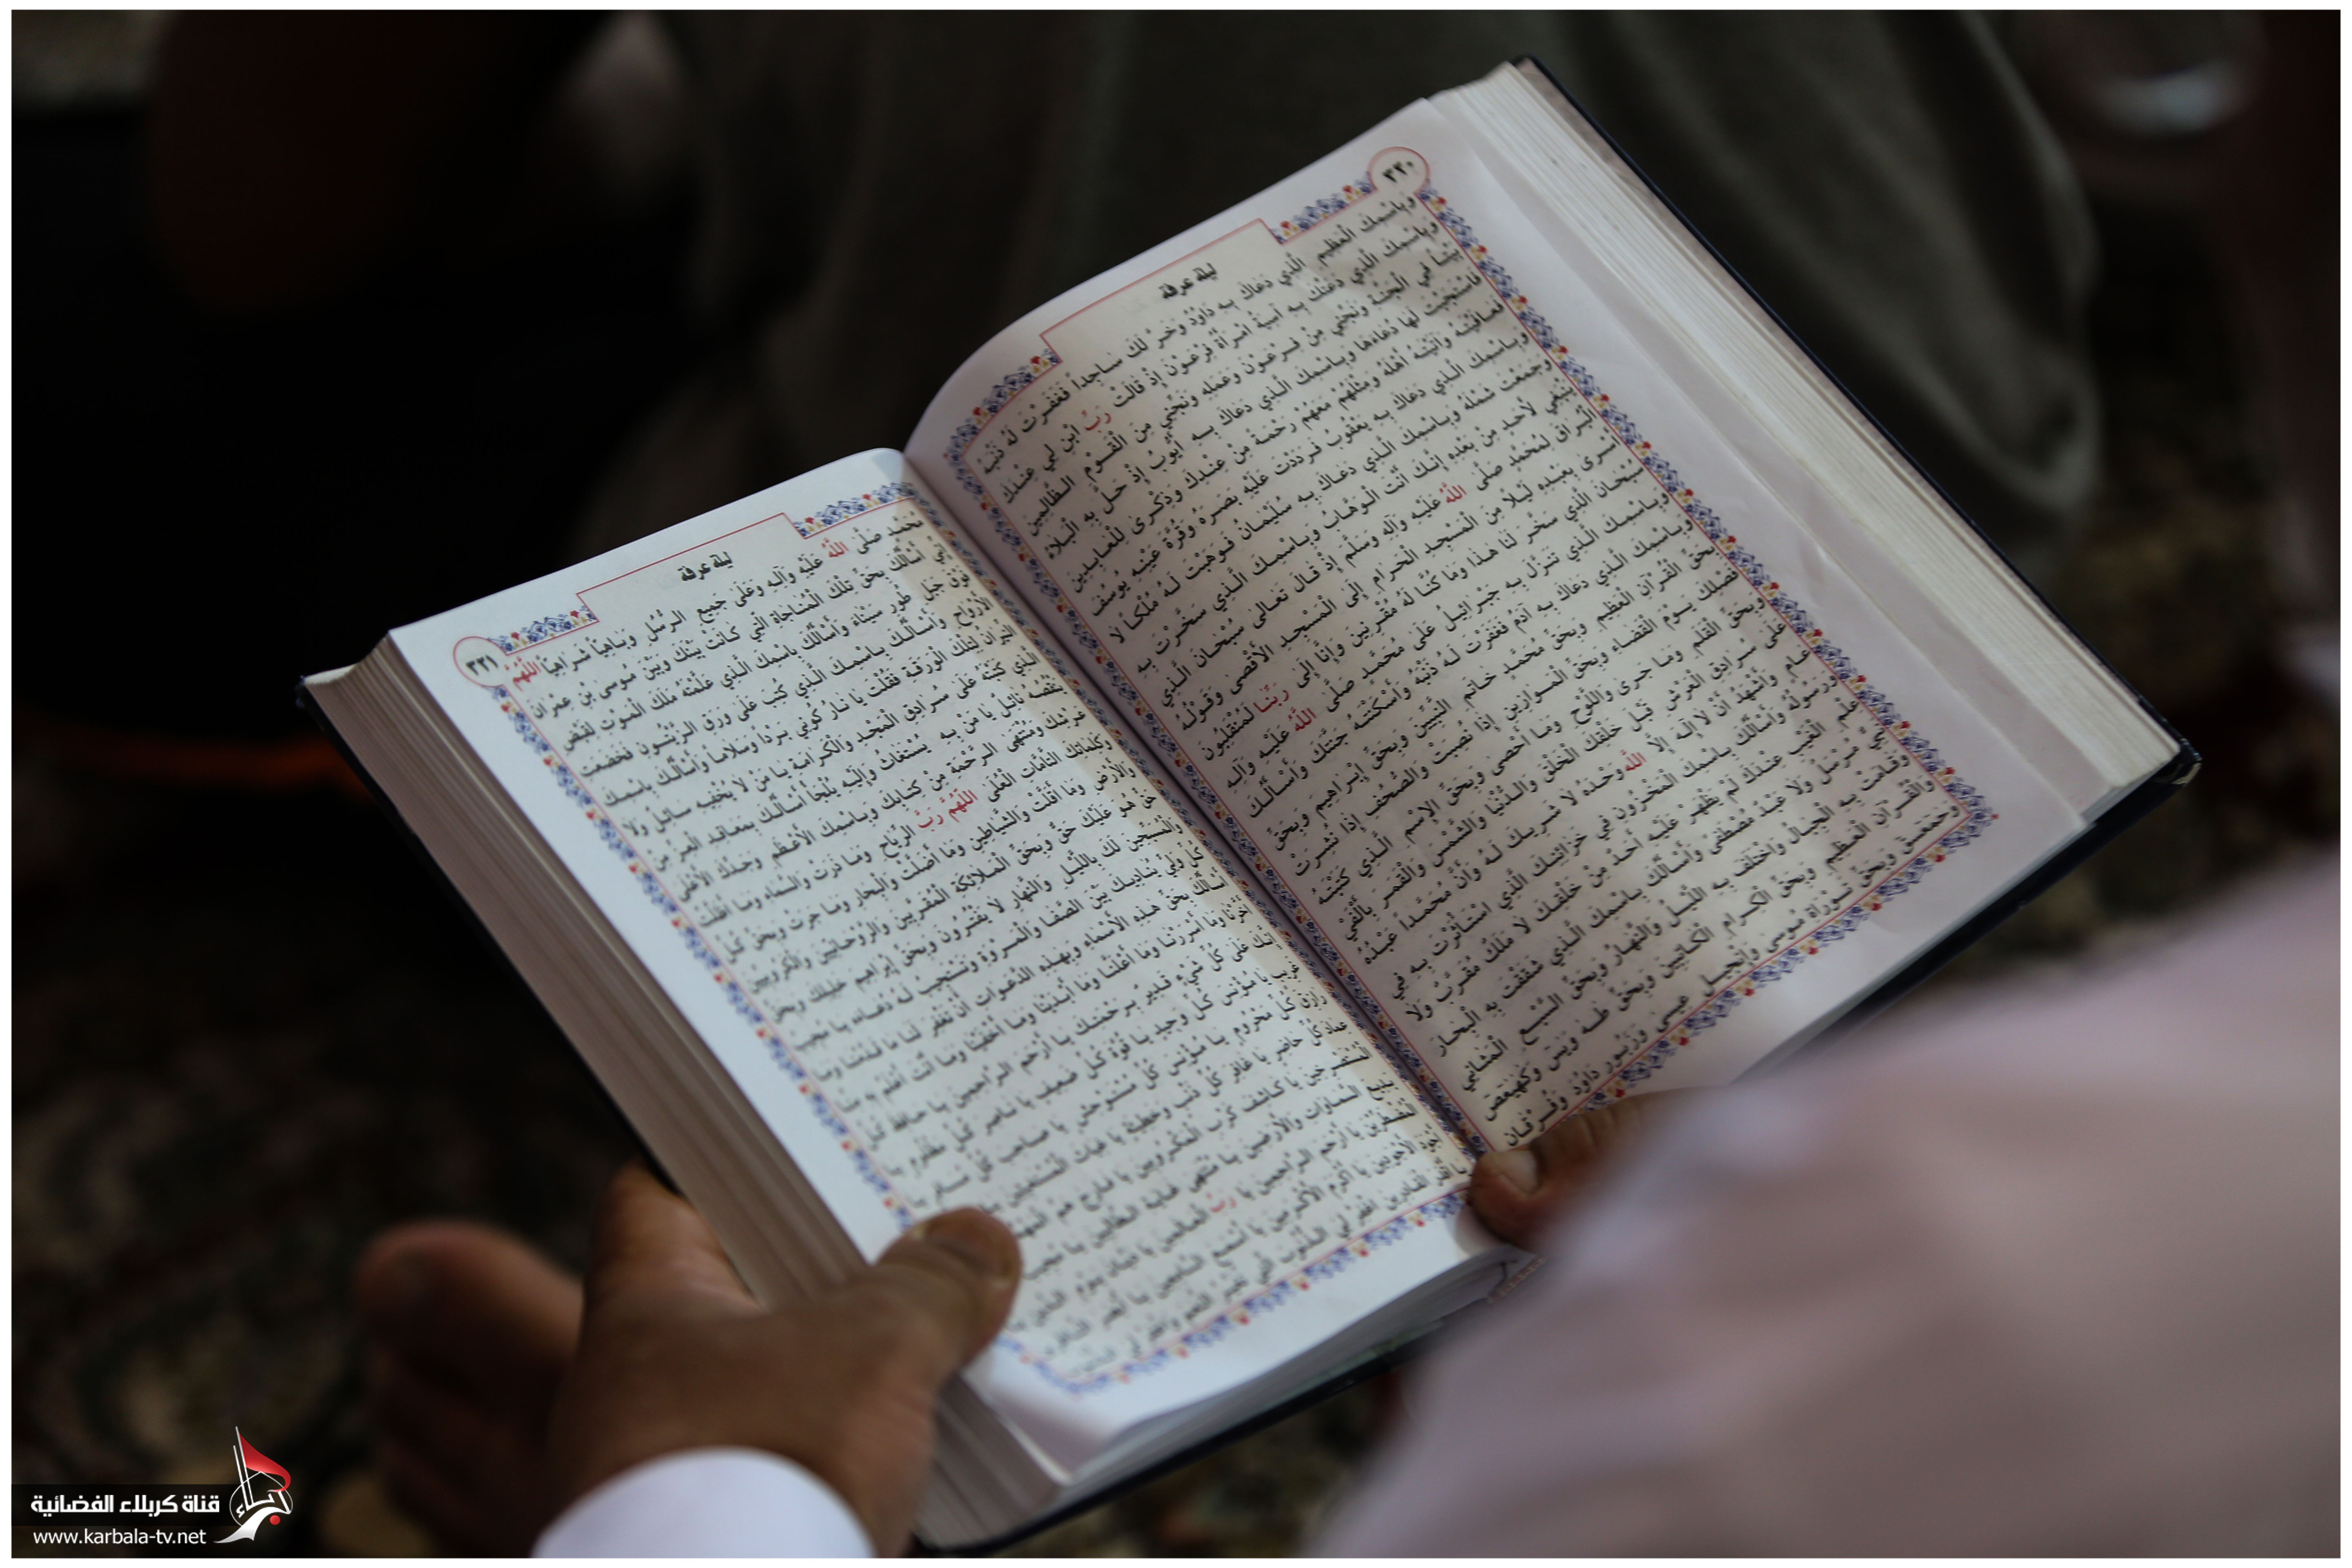 ٣٣٠
ليلة عرفة
وَبِاسْمِكَ الْعَظِيمِ الَّذِي دَعَاكَ بِهِ دَاوُدُ وَخَرَّ لَكَ سَاجِداً فَغَفَرْتَ لَهُ ذَنْبَهُ
وَبِاسْمِكَ الَّذِي دَعَتْكَ بِهِ آسِيَةُ امْرَأَةُ فِرْعَوْنَ إِذْ قَالَتْ رَبِّ ابْنِ لِي عِنْدَكَ
بَيْتاً فِي الْجَنَّةِ وَنَجِّنِي مِنْ فِرْعَوْنَ وَعَمَلِهِ وَنَجِّنِي مِنَ الْقَوْمِ الظَّالِمِينَ
فَاسْتَجَبْتَ لَهَا دُعَاءَهَا وَبِاسْمِكَ الَّذِي دَعَاكَ بِهِ أَيُّوبُ إِذْ حَلَّ بِهِ الْبَلاءُ
فَعَافَيْتَهُ وَآتَيْتَهُ أَهْلَهُ وَمِثْلَهُمْ مَعَهُمْ رَحْمَةً مِنْ عِنْدِكَ وَذِكْرَى لِلْعَابِدِينَ
وَبِاسْمِكَ الَّذِي دَعَاكَ بِهِ يَعْقُوبُ فَرَدَدْتَ عَلَيْهِ بَصَرَهُ وَقُرَّةَ عَيْنِهِ يُوسُفَ
وَجَمَعْتَ شَمْلَهُ وَبِاسْمِكَ الَّذِي دَعَاكَ بِهِ سُلَيْمَانُ فَوَهَبْتَ لَهُ مُلْكاً لا
يَنْبَغِي لأَحَدٍ مِنْ بَعْدِهِ إِنَّكَ أَنْتَ الْوَهَّابُ وَبِاسْمِكَ الَّذِي سَخَّرْتَ بِهِ
الْبُرَاقَ لِمُحَمَّدٍ صَلَّى اللَّهُ عَلَيْهِ وَآلِهِ وَسَلَّمَ إِذْ قَالَ تَعَالَى سُبْحَانَ الَّذِي
أَسْرَى بِعَبْدِهِ لَيْلاً مِنَ الْمَسْجِدِ الْحَرَامِ إِلَى الْمَسْجِدِ الأَقْصَى وَقَوْلُهُ
سُبْحَانَ الَّذِي سَخَّرَ لَنَا هَذَا وَمَا كُنَّا لَهُ مُقْرِنِينَ وَإِنَّا إِلَى رَبِّنَا لَمُنْقَلِبُونَ
وَبِاسْمِكَ الَّذِي تَنَزَّلَ بِهِ جَبْرَائِيلُ عَلَى مُحَمَّدٍ صَلَّى اللَّهُ عَلَيْهِ وَآلِهِ
وَبِاسْمِكَ الَّذِي دَعَاكَ بِهِ آدَمُ فَغَفَرْتَ لَهُ ذَنْبَهُ وَأَسْكَنْتَهُ جَنَّتَكَ وَأَسْأَلُكَ
بِحَقِّ الْقُرْآنِ الْعَظِيمِ وَبِحَقِّ مُحَمَّدٍ خَاتَمِ النَّبِيِّينَ وَبِحَقِّ إِبْرَاهِيمَ وَبِحَقِّ
فَصْلِكَ يَوْمَ الْقَضَاءِ وَبِحَقِّ الْمَوَازِينِ إِذَا نُصِبَتْ وَالصُّحُفِ إِذَا نُشِرَتْ
وَبِحَقِّ الْقَلَمِ وَمَا جَرَى وَاللَّوْحِ وَمَا أَحْصَى وَبِحَقِّ الإِسْمِ الَّذِي كَتَبْتَهُ
عَلَى سُرَادِقِ الْعَرْشِ قَبْلَ خَلْقِكَ الْخَلْقَ وَالدُّنْيَا وَالشَّمْسَ وَالْقَمَرَ بِأَلْفَيْ
عَامٍ وَأَشْهَدُ أَنْ لا إِلَهَ إِلَّا اللَّه وَحْدَهُ لا شَرِيكَ لَهُ وَأَنَّ مُحَمَّداً عَبْدُهُ
وَرَسُولُهُ وَأَسْأَلُكَ بِاسْمِكَ الْمَخْزُونِ فِي خَزَائِنِكَ الَّذِي اسْتَأْثَرْتَ بِهِ فِي
عِلْمِ الْغَيْبِ عِنْدَكَ لَمْ يَظْهَرْ عَلَيْهِ أَحَدٌ مِنْ خَلْقِكَ لا مَلَكٌ مُقَرَّبٌ وَلا
نَبِيٌّ مُرْسَلٌ وَلا عَبْدٌ مُصْطَفًى وَأَسْأَلُكَ بِاسْمِكَ الَّذِي شَقَقْتَ بِهِ الْبِحَارَ
وَقَامَتْ بِهِ الْجِبَالُ وَاخْتَلَفَ بِهِ اللَّيْلُ وَالنَّهَارُ وَبِحَقِّ السَّبْعِ الْمَثَانِي
وَالْقُرْآنِ الْعَظِيمِ وَبِحَقِّ الْكِرَامِ الْكَاتِبِينَ وَبِحَقِّ طَهَ وَيَسَ وَكَهَيَعَصَ
وَحَمَعَسَقَ وَبِحَقِّ تَوْرَاةِ مُوسَى وَإِنْجِيلِ عِيسَى وَزَبُورِ دَاوُدَ وَفُرْقَانِ
٣٣١
ليلة عرفة
مُحَمَّدٍ صَلَّى اللَّهُ عَلَيْهِ وَآلِهِ وَعَلَى جَمِيعِ الرُّسُلِ وَبَاهِيّاً شَرَاهِيّاً اللَّهُمَّ
إِنِّي أَسْأَلُكَ بِحَقِّ تِلْكَ الْمُنَاجَاةِ الَّتِي كَانَتْ بَيْنَكَ وَبَيْنَ مُوسَى بْنِ عِمْرَانَ
فَوْقَ جَبَلِ طُورِ سَيْنَاءَ وَأَسْأَلُكَ بِاسْمِكَ الَّذِي عَلَّمْتَهُ مَلَكَ الْمَوْتِ لِقَبْضِ
الأَرْوَاحِ وَأَسْأَلُكَ بِاسْمِكَ الَّذِي كُتِبَ عَلَى وَرَقِ الزَّيْتُونِ فَخَضَعَتِ
النِّيرَانُ لِتِلْكَ الْوَرَقَةِ فَقُلْتَ يَا نَارُ كُونِي بَرْداً وَسَلاماً وَأَسْأَلُكَ بِاسْمِكَ
الَّذِي كَتَبْتَهُ عَلَى سُرَادِقِ الْمَجْدِ وَالْكَرَامَةِ يَا مَنْ لا يُحْفِيهِ سَائِلٌ وَلا
يَنْقُصُهُ نَائِلٌ يَا مَنْ بِهِ يُسْتَغَاثُ وَإِلَيْهِ يُلْجَأُ أَسْأَلُكَ بِمَعَاقِدِ الْعِزِّ مِنْ
عَرْشِكَ وَمُنْتَهَى الرَّحْمَةِ مِنْ كِتَابِكَ وَبِاسْمِكَ الأَعْظَمِ وَجَدِّكَ الأَعْلَى
وَكَلِمَاتِكَ التَّامَّاتِ الْعُلَى اللَّهُمَّ رَبَّ الرِّيَاحِ وَمَا ذَرَتْ وَالسَّمَاءِ وَمَا أَظَلَّتْ
وَالأَرْضِ وَمَا أَقَلَّتْ وَالشَّيَاطِينِ وَمَا أَضَلَّتْ وَالْبِحَارِ وَمَا جَرَتْ وَبِحَقِّ كُلِّ
حَقٍّ هُوَ عَلَيْكَ حَقٌّ وَبِحَقِّ الْمَلائِكَةِ الْمُقَرَّبِينَ وَالرَّوْحَانِيِّينَ وَالْكَرُوبِيِّينَ
وَالْمُسَبِّحِينَ لَكَ بِاللَّيْلِ وَالنَّهَارِ لا يَفْتُرُونَ وَبِحَقِّ إِبْرَاهِيمَ خَلِيلِكَ وَبِحَقِّ
كُلِّ وَلِيٍّ يُنَادِيكَ بَيْنَ الصَّفَا وَالْمَرْوَةِ وَتَسْتَجِيبُ لَهُ دُعَاءَهُ يَا مُجِيبُ
أَسْأَلُكَ بِحَقِّ هَذِهِ الأَسْمَاءِ وَبِهَذِهِ الدَّعَوَاتِ أَنْ تَغْفِرَ لَنَا مَا قَدَّمْنَا وَمَا
أَخَّرْنَا وَمَا أَسْرَرْنَا وَمَا أَعْلَنَّا وَمَا أَبْدَيْنَا وَمَا أَخْفَيْنَا وَمَا أَنْتَ أَعْلَمُ بِهِ مِنَّا
إِنَّكَ عَلَى كُلِّ شَيْءٍ قَدِيرٌ بِرَحْمَتِكَ يَا أَرْحَمَ الرَّاحِمِينَ يَا حَافِظَ كُلِّ
غَرِيبٍ يَا مُؤْنِسَ كُلِّ وَحِيدٍ يَا قُوَّةَ كُلِّ ضَعِيفٍ يَا نَاصِرَ كُلِّ مَظْلُومٍ يَا
رَازِقَ كُلِّ مَحْرُومٍ يَا مُؤْنِسَ كُلِّ مُسْتَوْحِشٍ يَا صَاحِبَ كُلِّ مُسَافِرٍ يَا
عِمَادَ كُلِّ حَاضِرٍ يَا غَافِرَ كُلِّ ذَنْبٍ وَخَطِيئَةٍ يَا غِيَاثَ الْمُسْتَغِيثِينَ يَا
الْمُسْتَصْرِخِينَ يَا كَاشِفَ كَرْبِ الْمَكْرُوبِينَ يَا فَارِجَ هَمِّ
بَدِيعَ السَّمَاوَاتِ وَالأَرَضِينَ يَا مُنْتَهَى غَايَةِ الطَّالِبِينَ يَا مُجِيبَ
الْمُضْطَرِّينَ يَا أَرْحَمَ الرَّاحِمِينَ يَا رَبَّ الْعَالَمِينَ يَا دَيَّانَ يَوْمِ الدِّينِ يَا
أَجْوَدَ الأَجْوَدِينَ يَا أَكْرَمَ الأَكْرَمِينَ يَا أَسْمَعَ السَّامِعِينَ يَا أَبْصَرَ النَّاظِرِينَ
يَا أَقْدَرَ الْقَادِرِينَ اغْفِرْ لِيَ الذُّنُوبَ الَّتِي تُغَيِّرُ النِّعَمَ وَاغْفِرْ لِيَ
قناة كربلاء الفضائية
www.karbala-tv.net